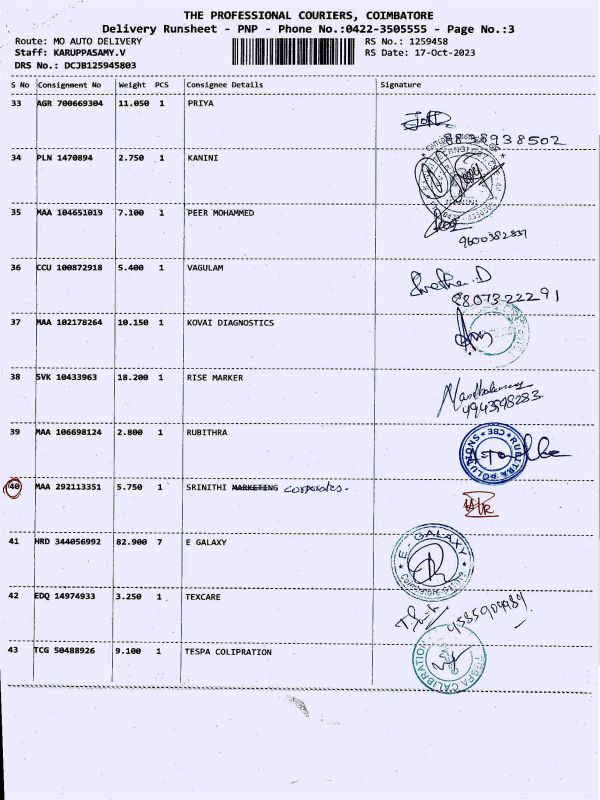 THE PROFESSIONAL COURIERS, COIMBATORE
Delivery Runsheet - PNP - Phone No.:0422-3505555 - Page No.:3
Route: MO AUTO DELIVERY RS No.: 1259458
Staff: KARUPPASAMY.V RS Date: 17-Oct-2023
DRS No.: DCJB125945803
S No Consignment No Weight PCS Consignee Details Signature
33 AGR 700669304 11.050 1 PRIYA
8838938502
34 PLN 1470894 2.750 1 KANINI
35 MAA 104651019 7.100 1 PEER MOHAMMED
9600382837
36 CCU 100872918 5.400 1 VAGULAM
Swetha D
8807322291
37 MAA 102178264 10.150 1 KOVAI DIAGNOSTICS
38 SVK 10433963 18.200 1 RISE MARKER
4943598283
39 MAA 106698124 2.800 1 RUBITHRA
RUBITRA SOLUTIONS * CBE *
40 MAA 292113351 5.750 1 SRINITHI MARKETING corporates.
41 HRD 344056992 82.900 7 E GALAXY
* E - GALAXY *
42 EDQ 14974933 3.250 1 TEXCARE
9585909989
43 TCG 50488926 9.100 1 TESPA COLIPRATION
TESPA CALIBRATION